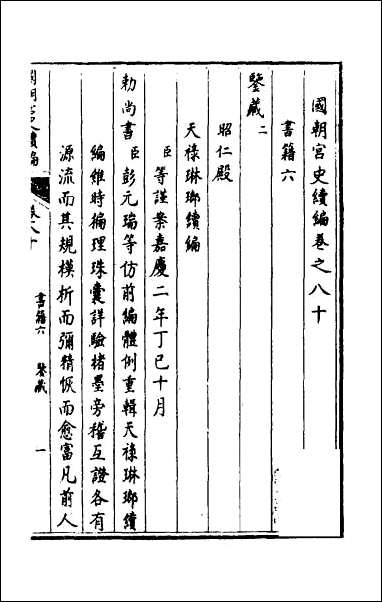 國朝宮史續編卷之八十
書籍六
鑒藏二
昭仁殿
天祿琳瑯續編
臣等謹案嘉慶二年丁巳十月
勅尚書臣彭元瑞等仿前編體例重輯天祿琳瑯續
編維時徧理珠囊詳驗楮墨旁稽互證各有
源流而其規模析而彌精恢而愈富凡前人
國朝宮史續編
卷八十
書籍六 鑒藏
一